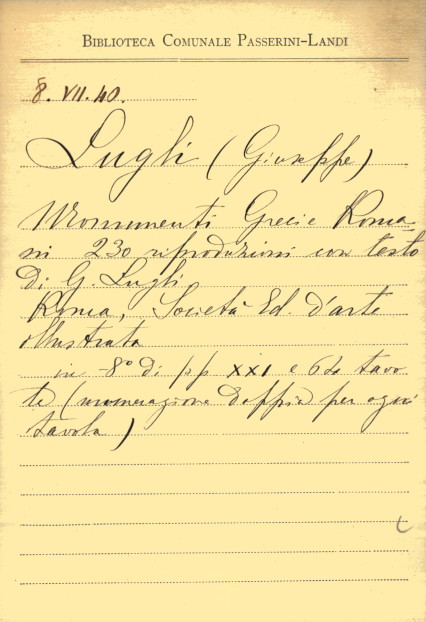 BIBLIOTECA COMUNALE PASSERINI-LANDI
8. VII. 40.
Lugli (Giuseppe)
Monumenti Greci e Roma-
ni 230 riproduzioni con testo
di G. Lugli
Roma, Società Ed. d'arte
illustrata
in 8° di pp XXI e 64 tavo
le (numerazione doppia per ogni
tavola)